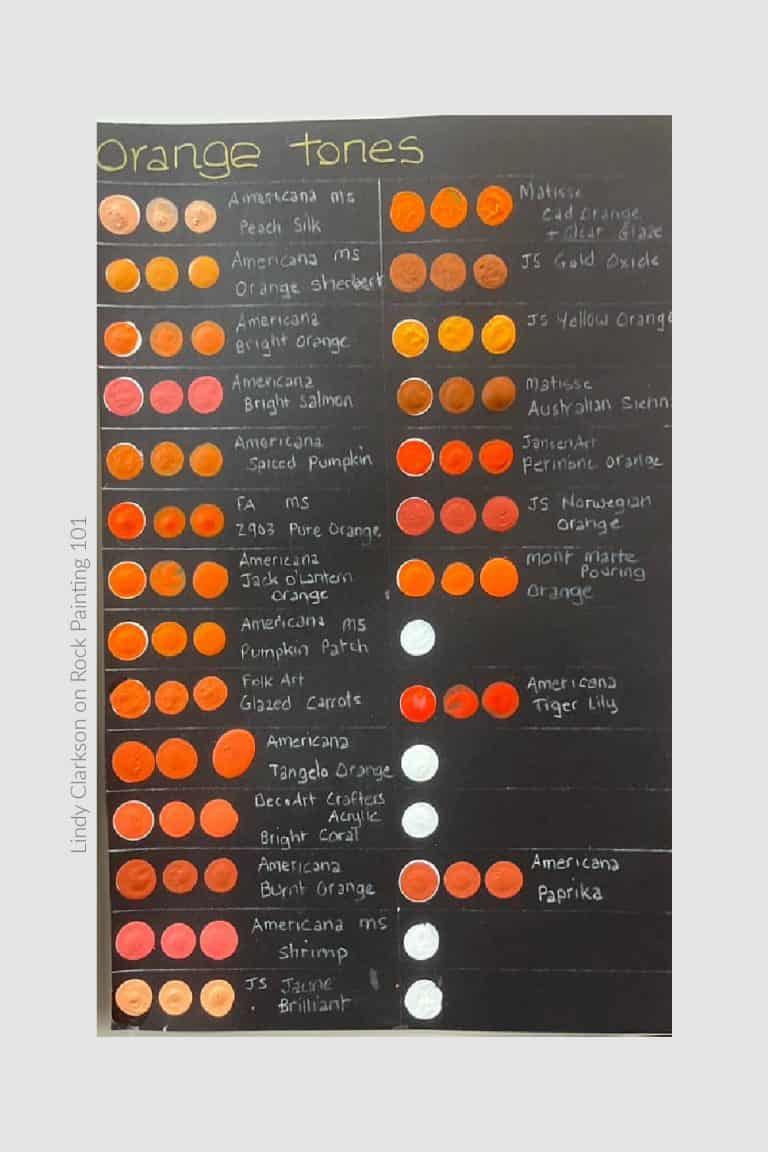 Orange tones
Americana ms
Peach Silk
Americana ms
Orange Sherbert
Americana
Bright Orange
Americana
Bright Salmon
Americana
Spiced Pumpkin
FA ms
2903 Pure Orange
Americana
Jack o'Lantern
Orange
Americana ms
Pumpkin Patch
Folk Art
Glazed Carrots
Americana
Tangelo Orange
DecoArt Crafters
Acrylic
Bright Coral
Americana
Burnt Orange
Americana ms
Shrimp
JS Jaune
Brilliant
Matisse
Cad Orange
+ Clear Glaze
JS Gold Oxide
JS Yellow Orange
Matisse
Australian Sienn
JansenArt
Perinone Orange
JS Norwegian
Orange
Mont Marte
Pouring
Orange
Americana
Tiger Lily
Americana
Paprika
Lindy Clarkson on Rock Painting 101